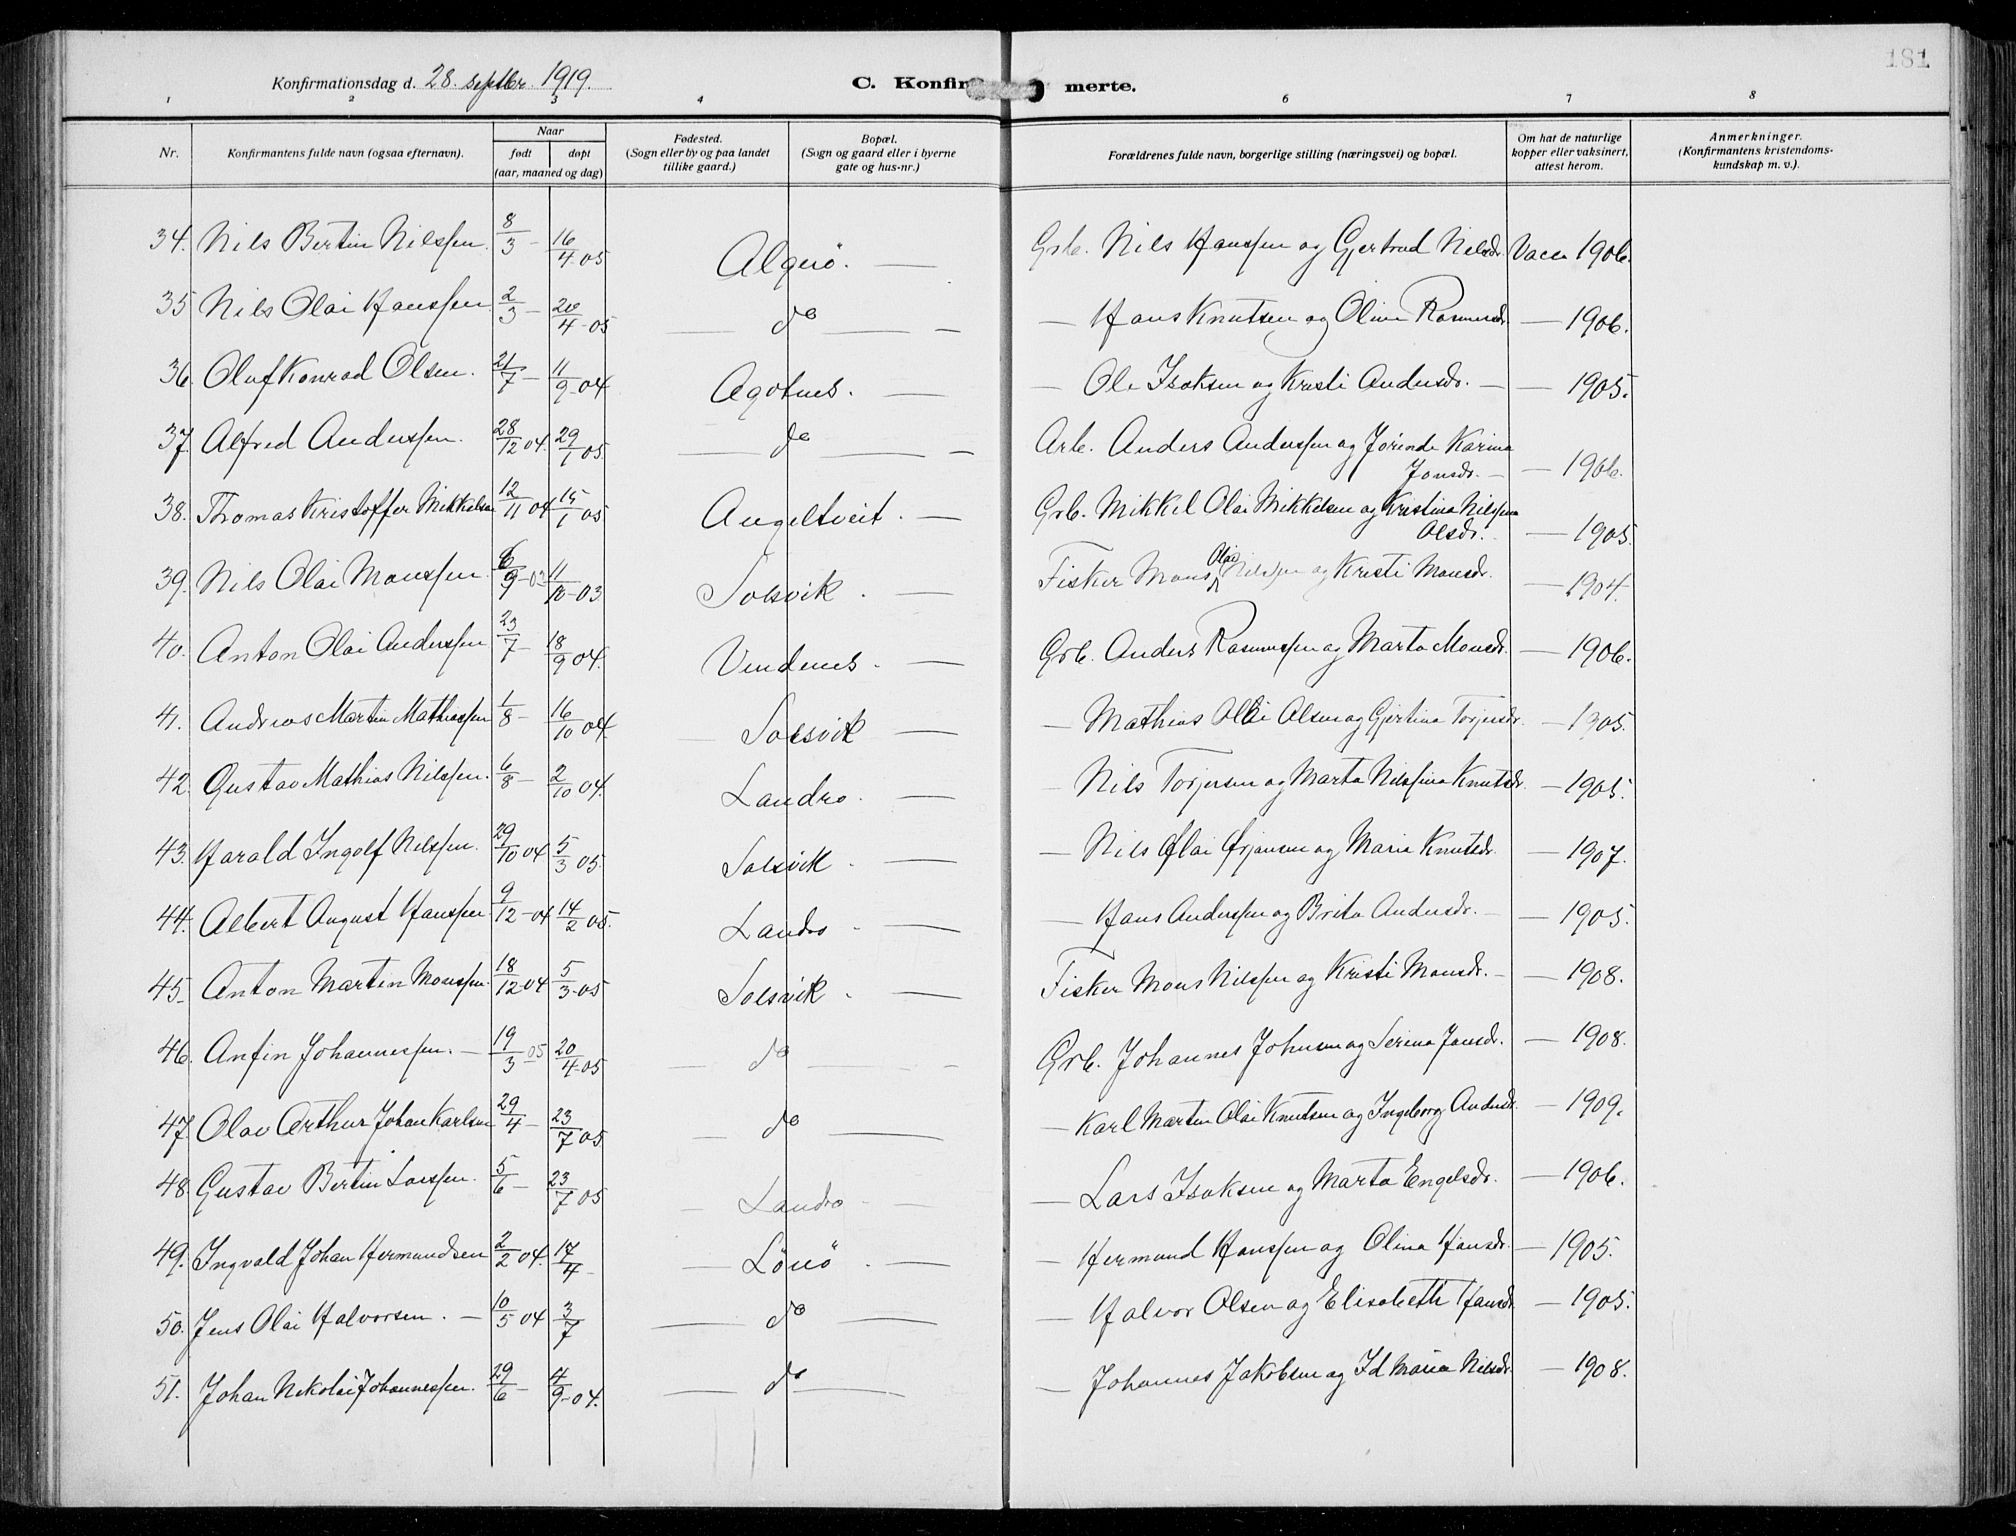 181
Konfirmationsdag d. 28. septbr. 1919. C. Konfir merte.
1 2 3 4 5 6 7 8
Nr. Konfirmantens fulde navn (ogsaa efternavn). Naar født døpt (aar, maaned og dag) Fødested. (Sogn eller by og paa landet tillike gaard.) Bopæl. (Sogn og gaard eller i byerne gate og hus-nr.) Forældrenes fulde navn, borgerlige stilling (næringsvei) og bopæl. Om hat de naturlige kopper eller vaksinert, attest herom. Anmerkninger. (Konfirmantens kristendomskundskap m. v.).
34. Nils Bertin Nilssen. 8/3 – 16/4 05 Algerö. — Grb. Nils Hanssen og Gjertrud Nilsdr. Vacc 1906.
35 Nils Olai Hanssen 2/3 – 20/4 05 — do — — Hans Knutsen og Oline Rasmusdr. — 1906.
36. Oluf Konrad Olsen. 21/7 – 11/9 04 Agotnes. — — Ole Isaksen og Kristi Andersdr. — 1905.
37. Alfred Anderssen. 28/12 04. 29/1 05. — do — Arb. Anders Anderssen og Jørende Karina Jonsdr. — 1906.
38. Thomas Kristoffer Mikkelsen 12/11 04 15/1 05 Angeltveit. — Grb. Mikkel Olai Mikkelsen og Kristina Nilssina Olsdr. — 1905.
39. Nils Olai Monssen. 6/9 –03 11/10 –03 Solsvik. — Fisker Mons Olai Nilssen og Kristi Monsdr. — 1904.
40. Anton Olai Anderssen 23/7 – 18/9 04. Vindenes. — Grb. Anders Rasmussen og Marta Monsdr. — 1906.
41. Andreas Martin Mathiassen 1/8 – 16/10 04. — Solsvik — — Mathias Olai Olsen og Gjertina Torjersdr. — 1905.
42. Gustav Mathias Nilssen. 6/8 – 2/10 04. Landro. — — Nils Torjersen og Marta Nilssina Knutsdr. — 1905.
43. Harald Ingolf Nilssen. 29/10 04 5/3 05. Solsvik — — Nils Olai Ørjansen og Marie Knutsdr. — 1907.
44. Albert August Hanssen 9/12 –04 14/2 05. Landro — — Hans Anderssen og Brita Andersdr. — 1905.
45. Anton Martin Monssen. 18/12 04 5/3 05 Solsvik. — Fisker Mons Nilssen og Kristi Monsdr. — 1908.
46. Anfin Johannessen. — 19/3 05 20/4 05 — do — Grb. Johannes Johnsen og Serina Jansdr. — 1908.
47. Olav Arthur Johan Karlsen 29/4 – 23/7 05 — do — — Karl Martin Olai Knutsen og Ingeborg Andersdr. — 1909.
48. Gustav Bertin Larssen. 5/6 – 23/7 05 — Landro — — Lars Isaksen og Marta Engelsdr. — 1906.
49. Ingvald Johan Hermundsen 2/2 04. 17/4 – — Lönö. — — Hermund Hanssen og Olina Hansdr. — 1905.
50. Jens Olai Halvorsen. — 10/5 04 3/7 — do — — Halvor Olsen og Elisabeth Hansdr. — 1905.
51. Johan Nikolai Johannessen. 29/6 – 4/9 –04. — do — — Johannes Jakobsen og Id Maria Nilsdr. — 1908.